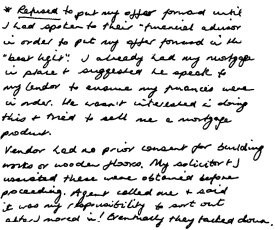 * Refused to put my offer forward until
I had spoken to their "financial advisor
in order to put my offer forward in the
"best light". I already had my mortgage
in place & suggested he speak to
my lendor to ensure my finances were
in order. He wasn't interested in doing
this & tried to sell me a mortgage
product.
Vendor had no prior consent for building
works or wooden floors. My solicitor & I
insisted these were obtained before
proceeding. Agent called me & said
it was my responsibility to sort out
after I moved in! Eventually they backed down.